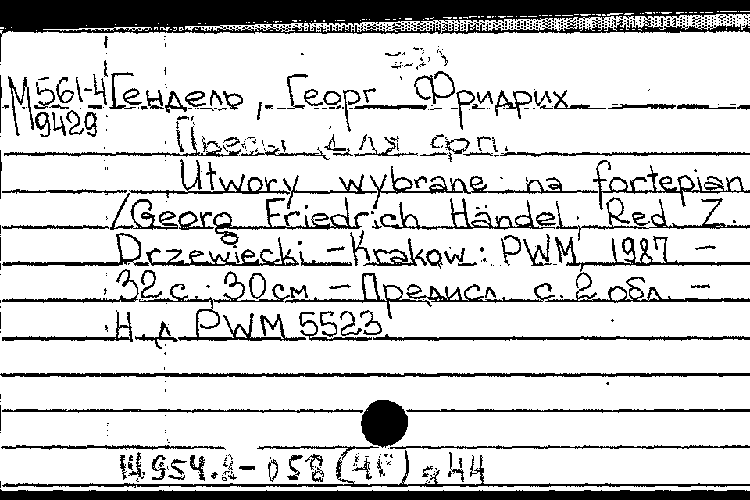 М 561-4
9429
Гендель, Георг Фридрих
Пьесы для фп.
Utwory wybrane na fortepian
/Georg Friedrich Händel; Red. Z.
Drzewiecki. - Krakow: PWM, 1987 -
32 с.; 30 см. - Предисл. с. 2 обл. -
Н. д. PWM 5523.
Щ954.2-058(4П)я44